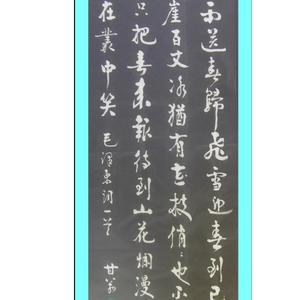 雨送春歸飛雪迎春到已
崖百丈冰猶有花枝俏〻也不
只把春來報待到山花爛漫
在叢中笑 毛澤東詞一首 甘